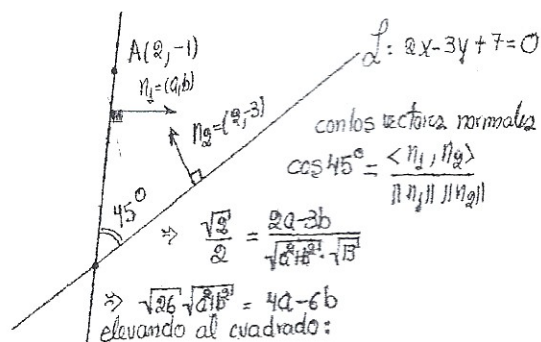 A(2,-1)
n₁=(a,b)
n₂=(2,-3)
45°
L: 2x-3y+7=0
con los vectores normales
cos45° = <n₁, n₂> / ||n₁|| ||n₂||
⇒ √2/2 = 2a-3b / √a²+b² · √13
⇒ √26 √a²+b² = 4a-6b
elevando al cuadrado: